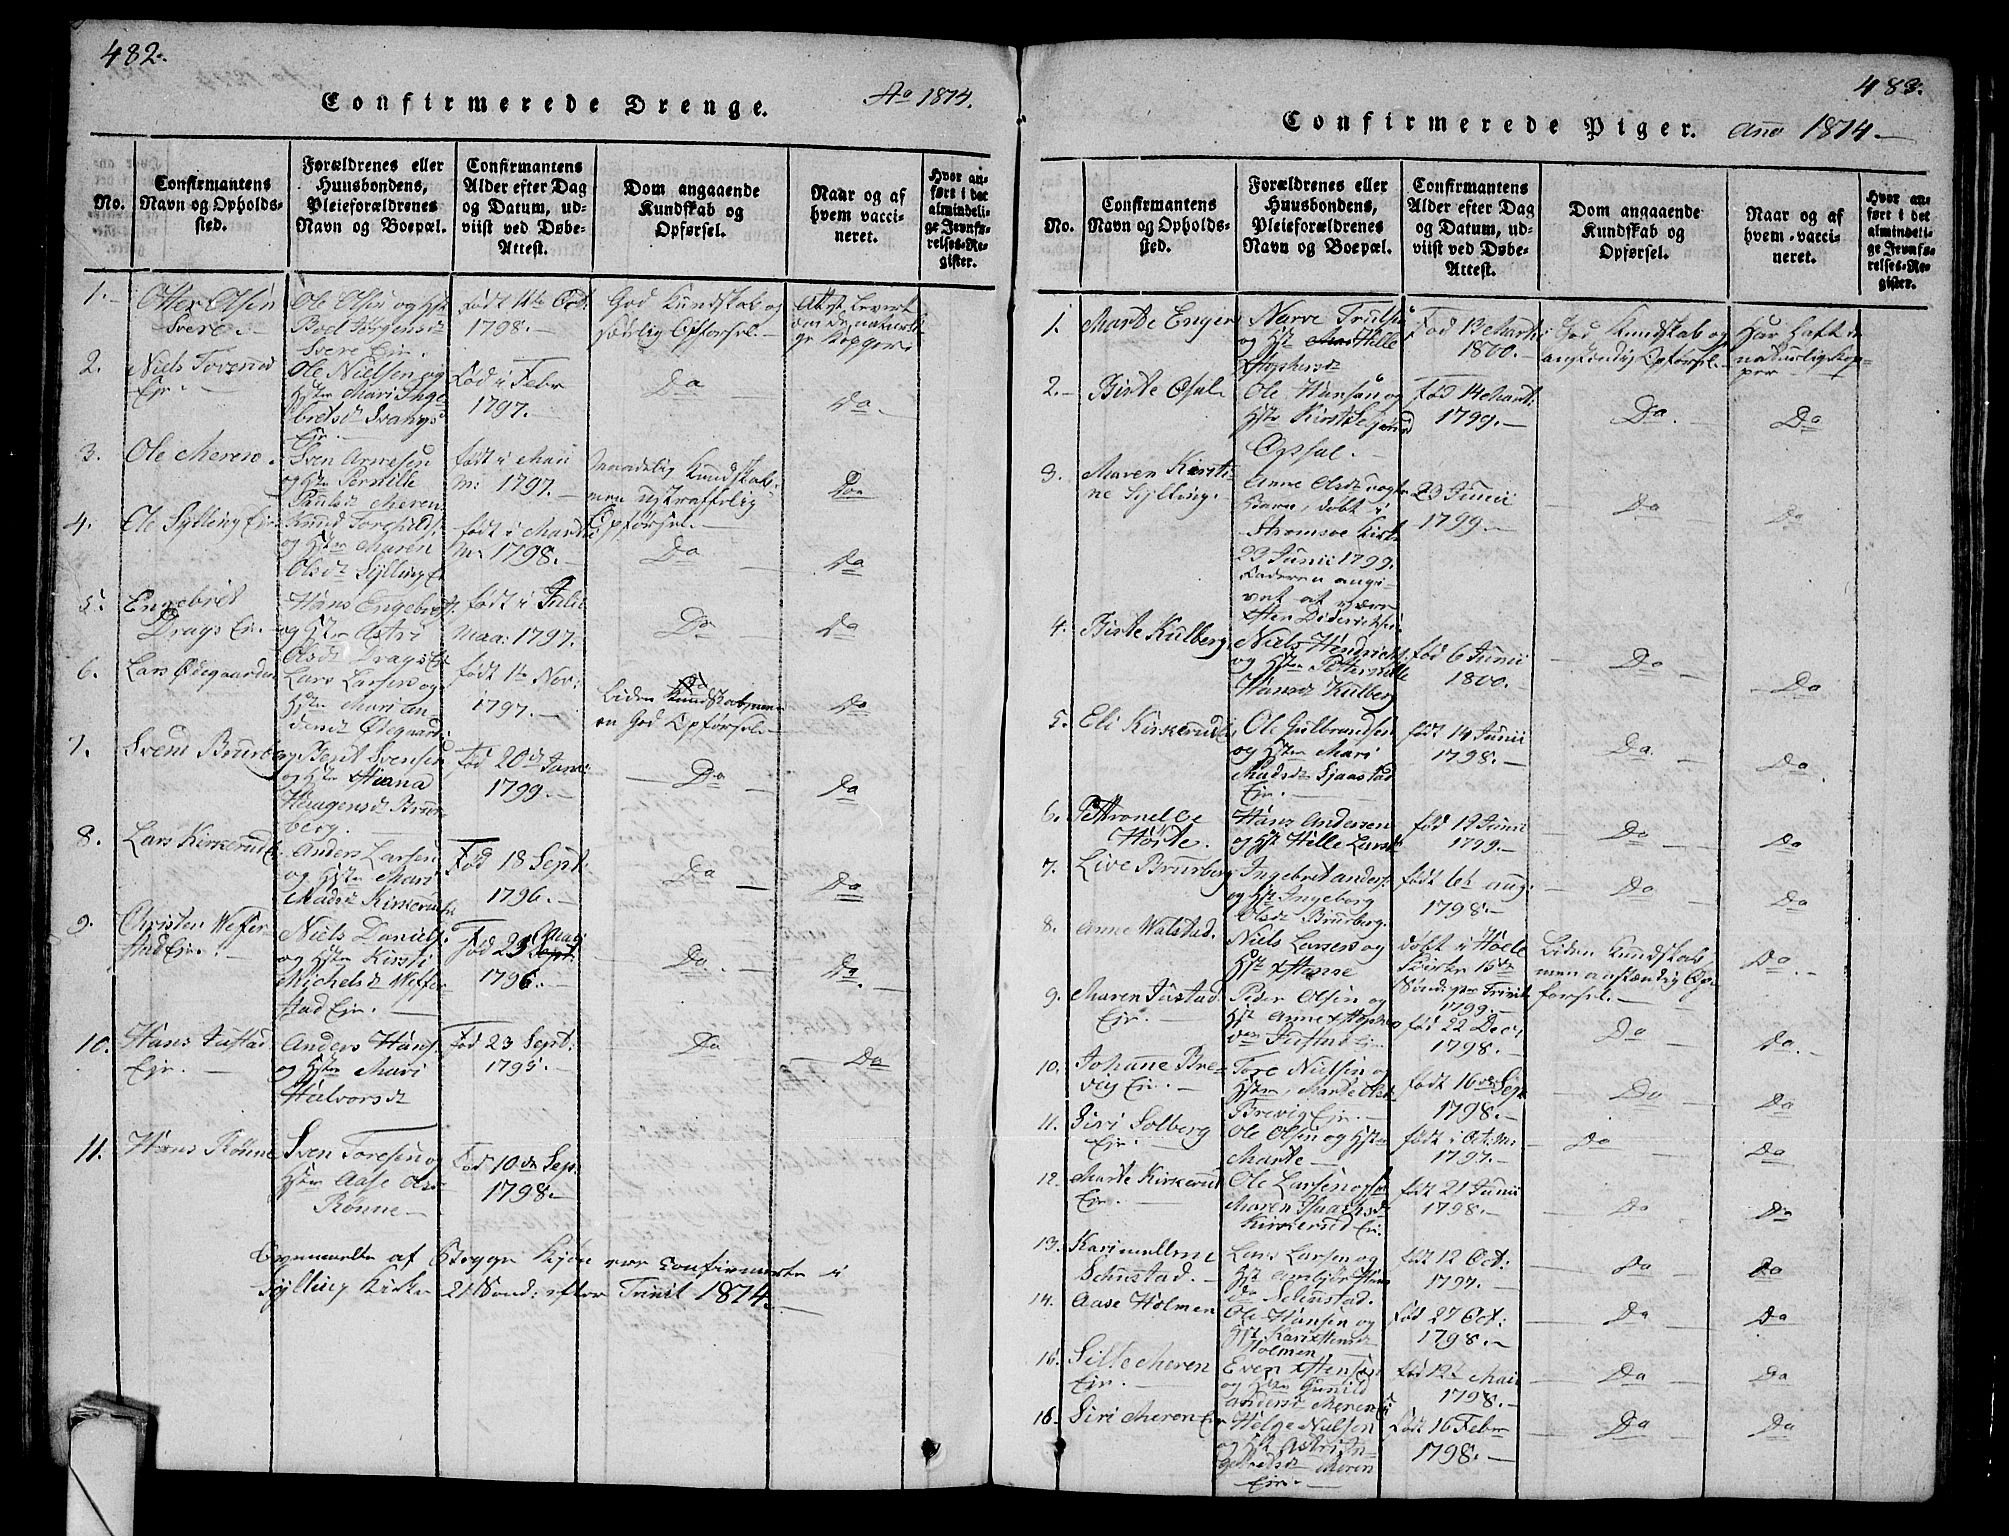 482.
Confirmerede Drenge.
Ao 1814.
No.
Confirmantens
Navn og Opholds-
sted.
Forældrenes eller
Huusbondens,
Pleieforældrenes
Navn og Boepæl.
Confirmantens
Alder efter Dag
og Datum, ud-
viist ved Døbe-
Attest.
Dom angaaende
Kundskab og
Opførsel.
Naar og af
hvem vacci-
neret.
Hvor an-
ført i det
almindeli-
ge Jevnfø-
relses-Re-
gister.
1.
Otter Olsen
Svere
Ole Olsen og Hst
Svere Eje.
født 14de Oct:
1798.
God Kundskab og
sædelig Opførsel.
2.
Niels Toverud
Eje.
Ole Nielsen og
Hstr Mari Inge-
bretsdt Svangs
Eje.
Fød i Febr
1797.
Do
Do
3.
Ole Meren
Sven Arnesen
og Hstr Pernille
Paulsdt Meren
født i Maii
M: 1797.
maadelig Kundskab
men ustraffelig
Opførsel.
Do
4.
Ole Sylling Eje
Knud Torchilds:
og Hstr Maren
Olsdt Sylling Eje
født i Martii
M: 1798.
Do
Do
5.
Engebret
Drags Eje.
Hans Engebrets:
og Hstr Astri
Olsdt Drags Eje
født i Julii
Maa: 1797.
Do
Do
6.
Lars Ødegaarden
Lars Larsen og
Hstr Mari An-
dersdt Ødegaard:
født 1te Nov:
1797.
Liden Kundskab men
en God Opførsel.
Do
7.
Svend Bruberg
Bent Svensen
og Hstr
Haagensdt Brur-
berg.
Fød 20de Janu:
1799.
Do
Do
8.
Lars Kirkerud Ej
Anders Larsen
og Hstr Mari
Madsdt Kirkerud Ej
Fød 18 Sept:
1796.
Do
Do
9.
Christen Wefer-
stad Eje.
Niels Daniels:
og Hstr Kirsti
Michelsdt Wefer-
stad Eje.
Fød 25
1796.
Do.
Do.
10.
Hans Justad
Eje.
Anders Hans:
og Hstr Mari
Halvorsdt
Fød 23 Sept:
1795.
Do
Do
11.
Hans Rønne
Sven Toresen og
Hstr Aase Ols
Rønne
Fød 10de Sep:
1798.
Ovenmeldte af Bragge Kjøn ere confirmerte i
Sylling Kirke 21 Sønd: efter Trinit 1814.
483.
Confirmerede Piger.
Anno 1814.
No.
Confirmantens
Navn og Opholds-
sted.
Forældrenes eller
Huusbondens,
Pleieforældrenes
Navn og Boepæl.
Confirmantens
Alder efter Dag
og Datum, ud-
viist ved Døbe-
Attest.
Dom angaaende
Kundskab og
Opførsel.
Naar og af
hvem vacci-
neret.
Hvor an-
ført i det
almindeli-
ge Jevnfø-
relses-Re-
gister.
1.
Marte Enger
Narve Truls:
og Hst Helle
Fød 13 Marti
1800.
God Kundskab og
anstændig Opførsel.
Har haft de
naturlig Kop-
per
2.
Birte Opsal
Ole Hansen og
Hstr Kirsti
Opsal.
Fød 14 Marti
1799.
Do.
Do
3.
Maren Kirsti-
ne Sylling.
Anne Olsdt uægte
Barn, døbt i
Strømsøe Kirke
29 Junii 1799.
Faderen angi-
vet at være
Diderichsen
23 Junii
1799.
Do
Do
4.
Birte Kulberg.
Niels Hendrichs:
og Hstr Pernille
Hansdt Kulberg
fød 6 Junii
1800.
Do
Do
5.
Eli Kirkerud
Ole Gulbrandsen
og Hstr Mari
Madsdt Sjaastad
Eje.
født 14 Junii
1798.
Do.
Do
6.
Pettronelle
Hørte.
Hans Andersen
og Hst Helle Larsdt
fød 19 Junii
1799.
Do
Do
7.
Live Brurberg
Ingebret Anders:
og Hst Ingeborg
Olsdt Brurberg.
født 6te Aug:
1798.
Do
Do
8.
Anne Walstad.
Niels Larsen og
døbt i Hole
Kirke 16de
Sønd: efter Trinit
1799.
Liden Kundskab,
men anstændig Op-
førsel.
Do.
9.
Maren Justad
Eje.
Peder Olsen og
Hst Anne
Justad Eje.
fød 22 Dec:
1798.
Do
Do.
10.
Johanne Bre-
vig Eje.
Tore Nielsen og
Hstr, Marte Olsdt
Brevig Eje.
født 16de Sept
1798.
Do
Do
11.
Siri Solberg
Eje.
Ole Olsen og Hstr
Marte
født i Oct: M:
1797.
Do
Do
12.
Marte Kirkerud
Eje.
Ole Larsen og Hst
Maren Isaachsdt
Kirkerud Eje.
født 21 Junii
1798.
Do
Do
13.
Schustad.
Lars Larsen og
Schustad.
født 12 Oct:
1797.
Do
Do
14.
Aase Holmen
Ole Hansen og
Hst Kari
Holmen
fød 27 Oct:
1798.
Do
Do
15.
Sille Meren
Eje.
Even
og Hstr Gunild
Andersdt Meren Ej
fød 12te Maii
1798.
Do
Do
16.
Siri Meren Eje
Helge Nielsen
og Hst Astri In-
gebretsdt Meren
Eje.
født 16 Febr
1798.
Do
Do